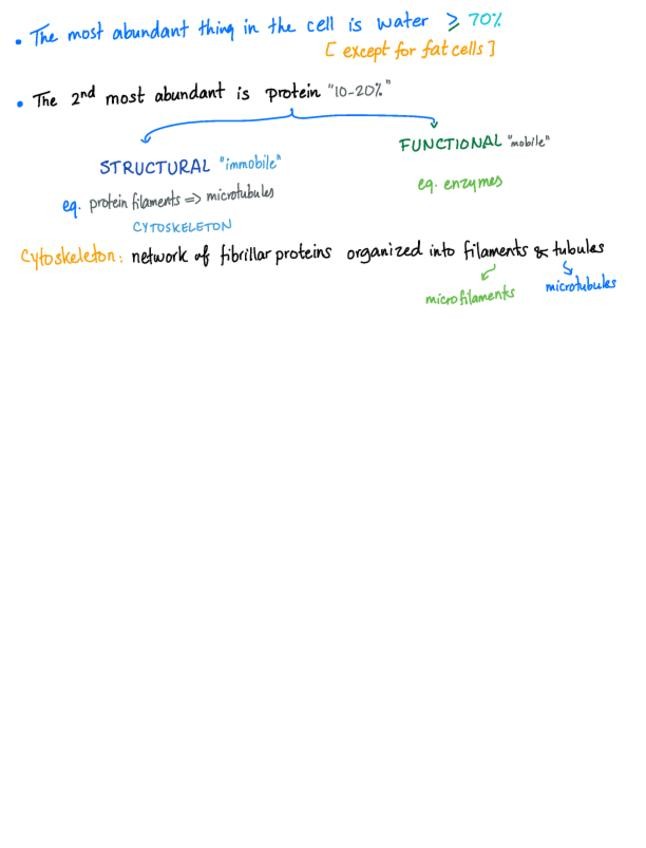 • The most abundant thing in the cell is water ≥ 70%
[ except for fat cells ]
• The 2nd most abundant is protein "10-20%"
STRUCTURAL "immobile"
eg. protein filaments => microtubules
CYTOSKELETON
FUNCTIONAL "mobile"
eg. enzymes
Cytoskeleton: network of fibrillar proteins organized into filaments & tubules
microfilaments
microtubules